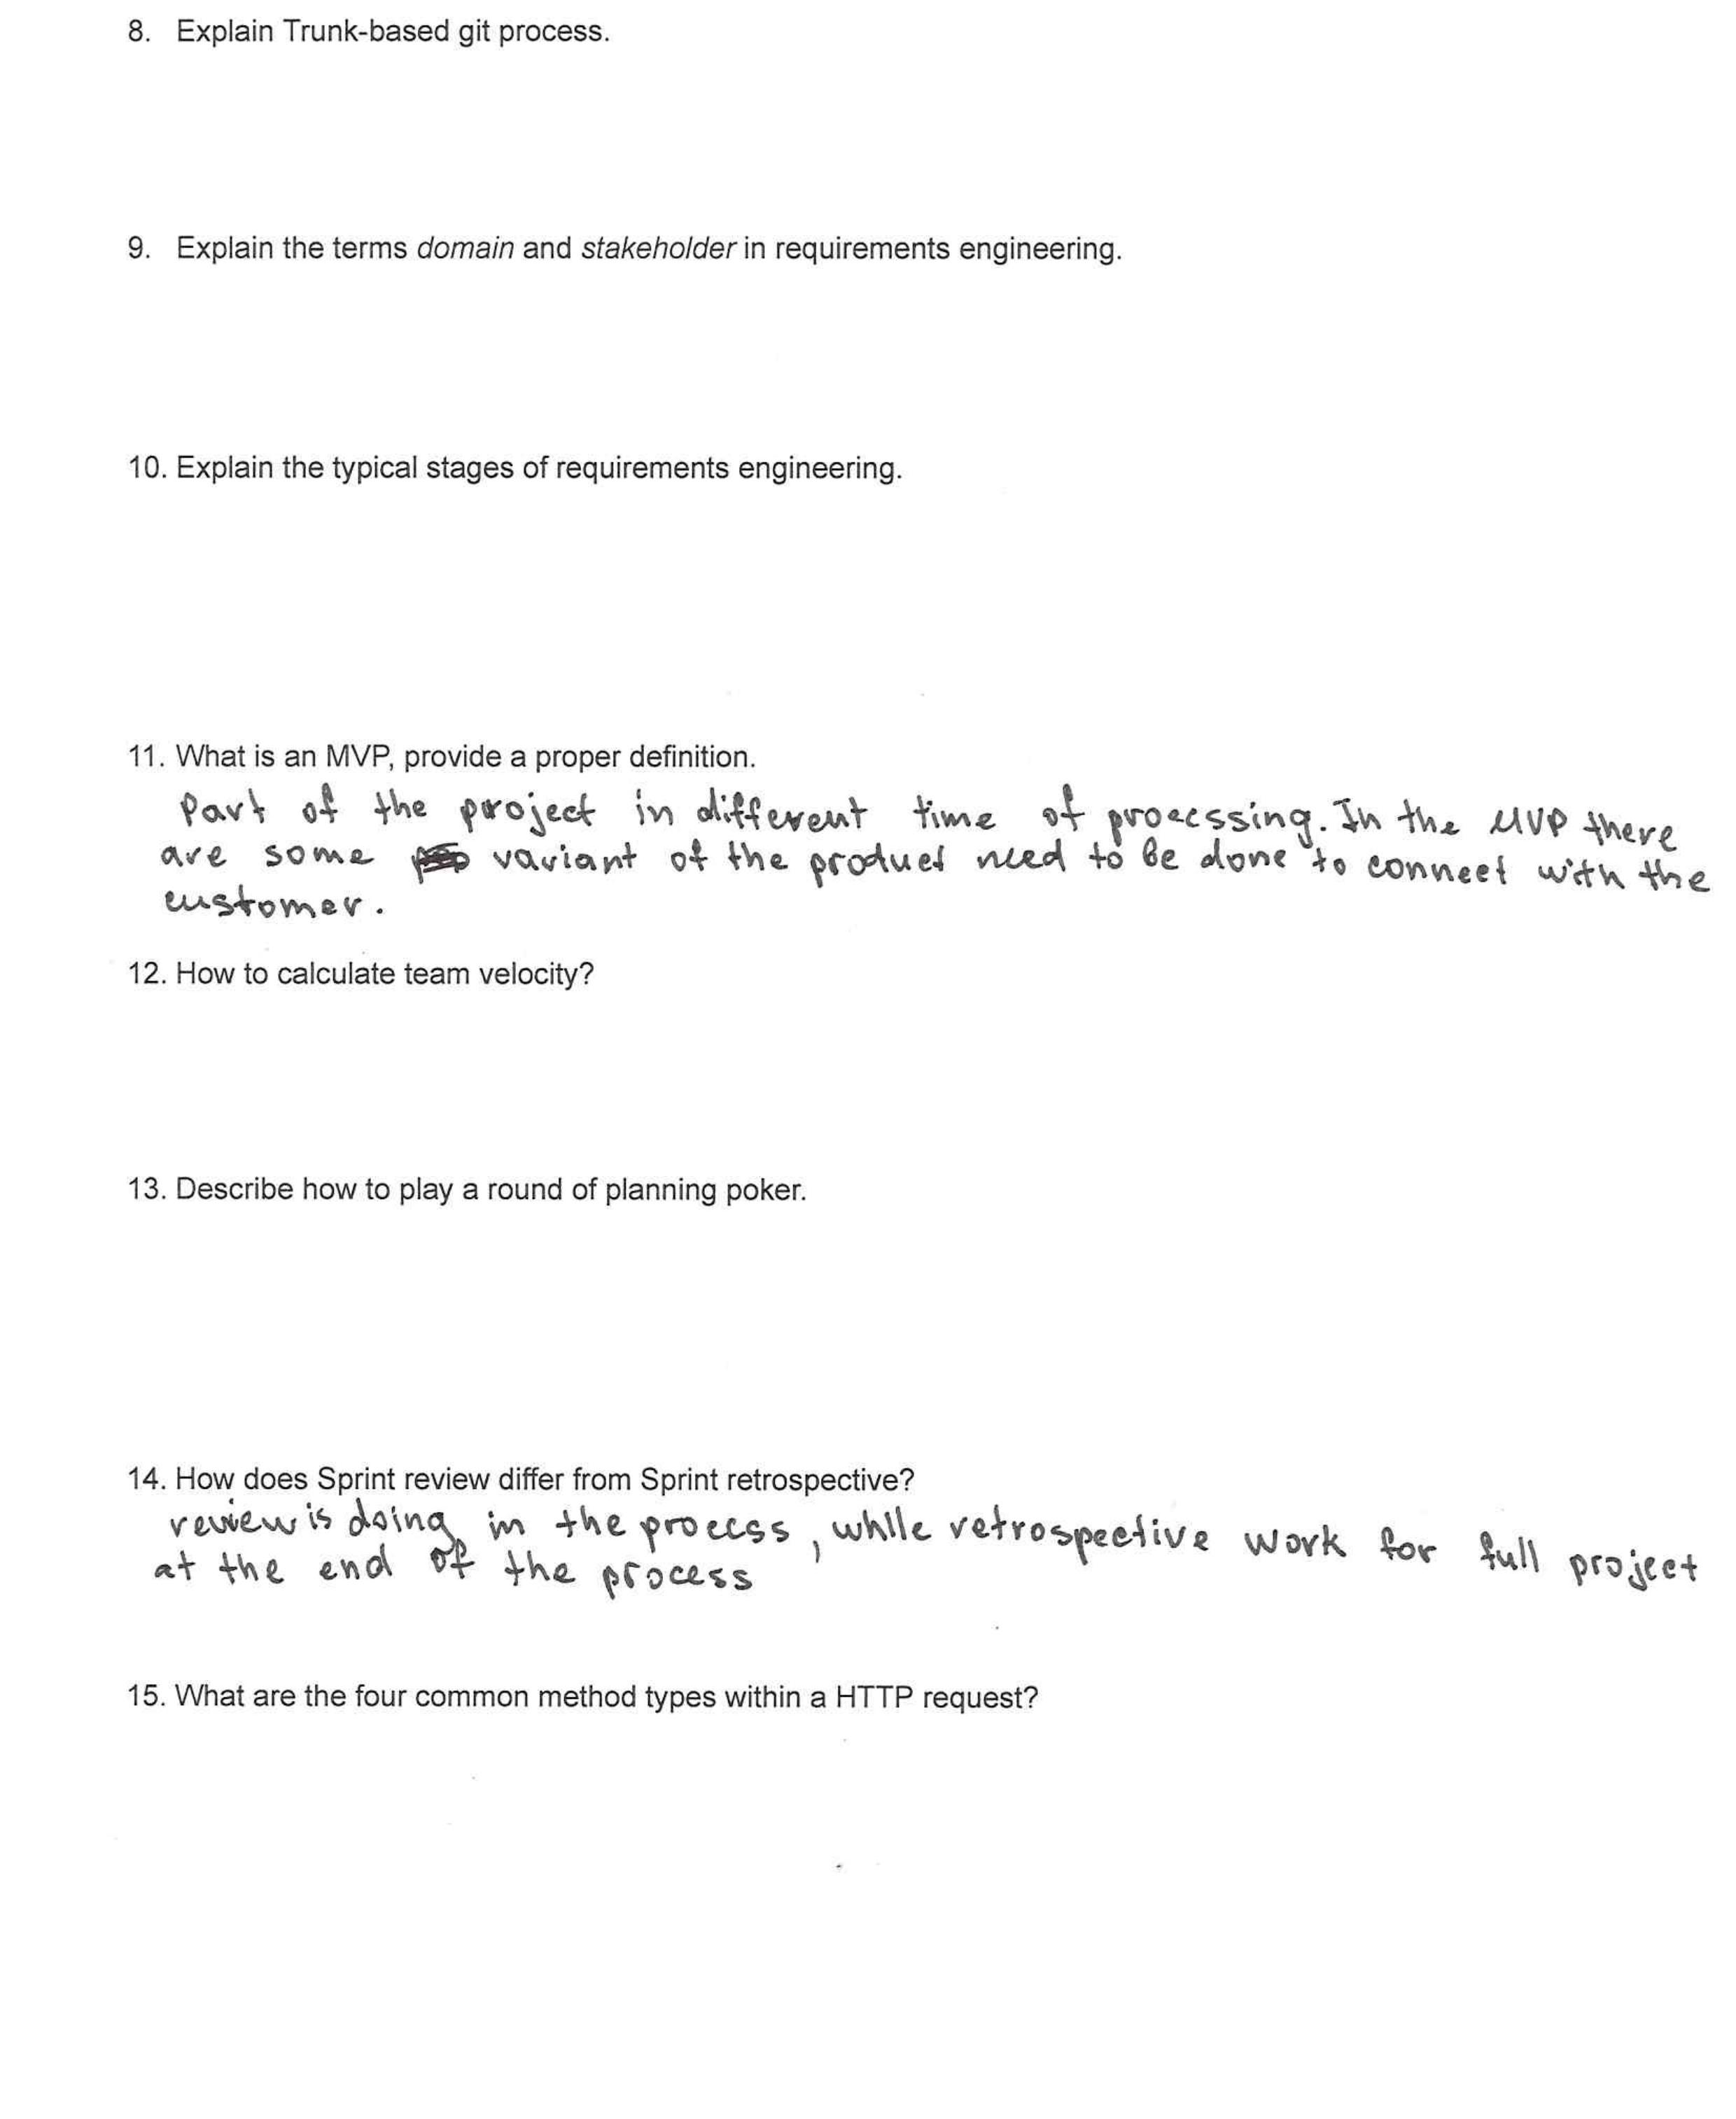 8. Explain Trunk-based git process.
9. Explain the terms domain and stakeholder in requirements engineering.
10. Explain the typical stages of requirements engineering.
11. What is an MVP, provide a proper definition.
Part of the project in different time of processing. In the MVP there
are some variant of the product need to be done to connect with the
customer.
12. How to calculate team velocity?
13. Describe how to play a round of planning poker.
14. How does Sprint review differ from Sprint retrospective?
review is doing in the process, while retrospective work for full project
at the end of the process
15. What are the four common method types within a HTTP request?